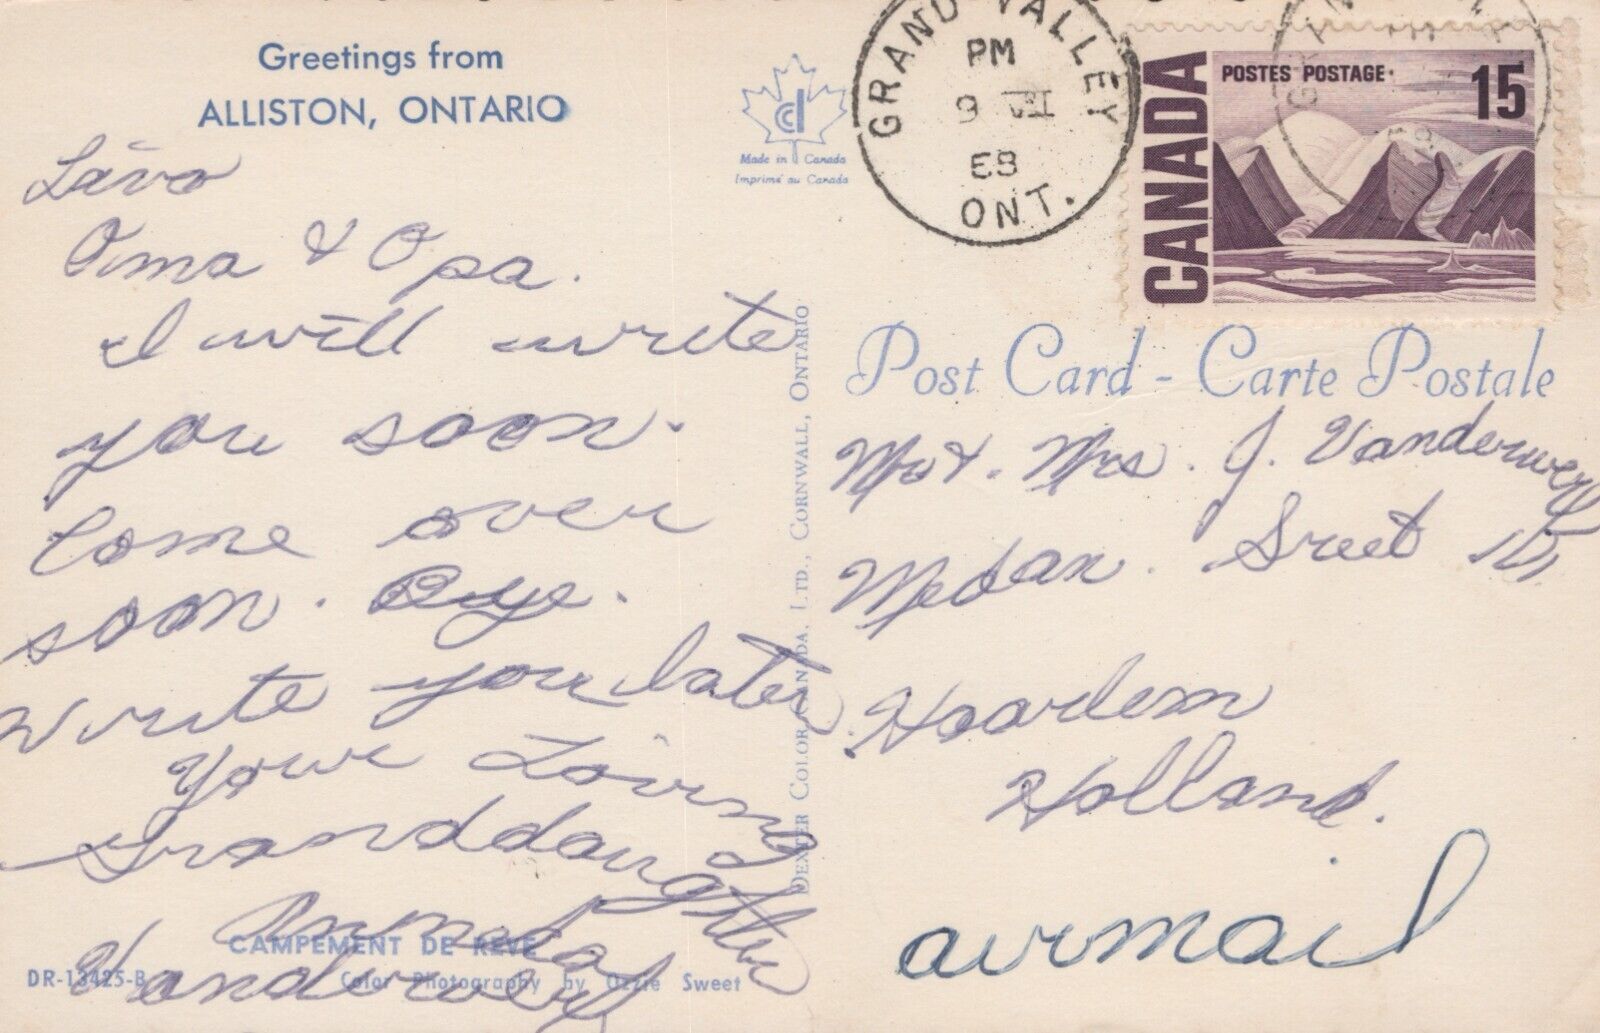 Greetings from
ALLISTON, ONTARIO
Oma & Opa.
I will write
you soon.
Come over
soon. Bye.
Write you later
Your Loving
Granddaughter
Vanderwey
CAMPEMENT DE REVE
DR-13425-B Color Photography by Ozzie Sweet
Made in Canada
Imprimé au Canada
DEXTER COLOR CANADA, LTD., CORNWALL, ONTARIO
GRAND VALLEY
PM
9 VI
ONT.
CANADA
POSTES POSTAGE
15
Post Card - Carte Postale
Mr & Mrs. J. Vanderwey
Medan. Sreet
Haarlem
Holland.
airmail